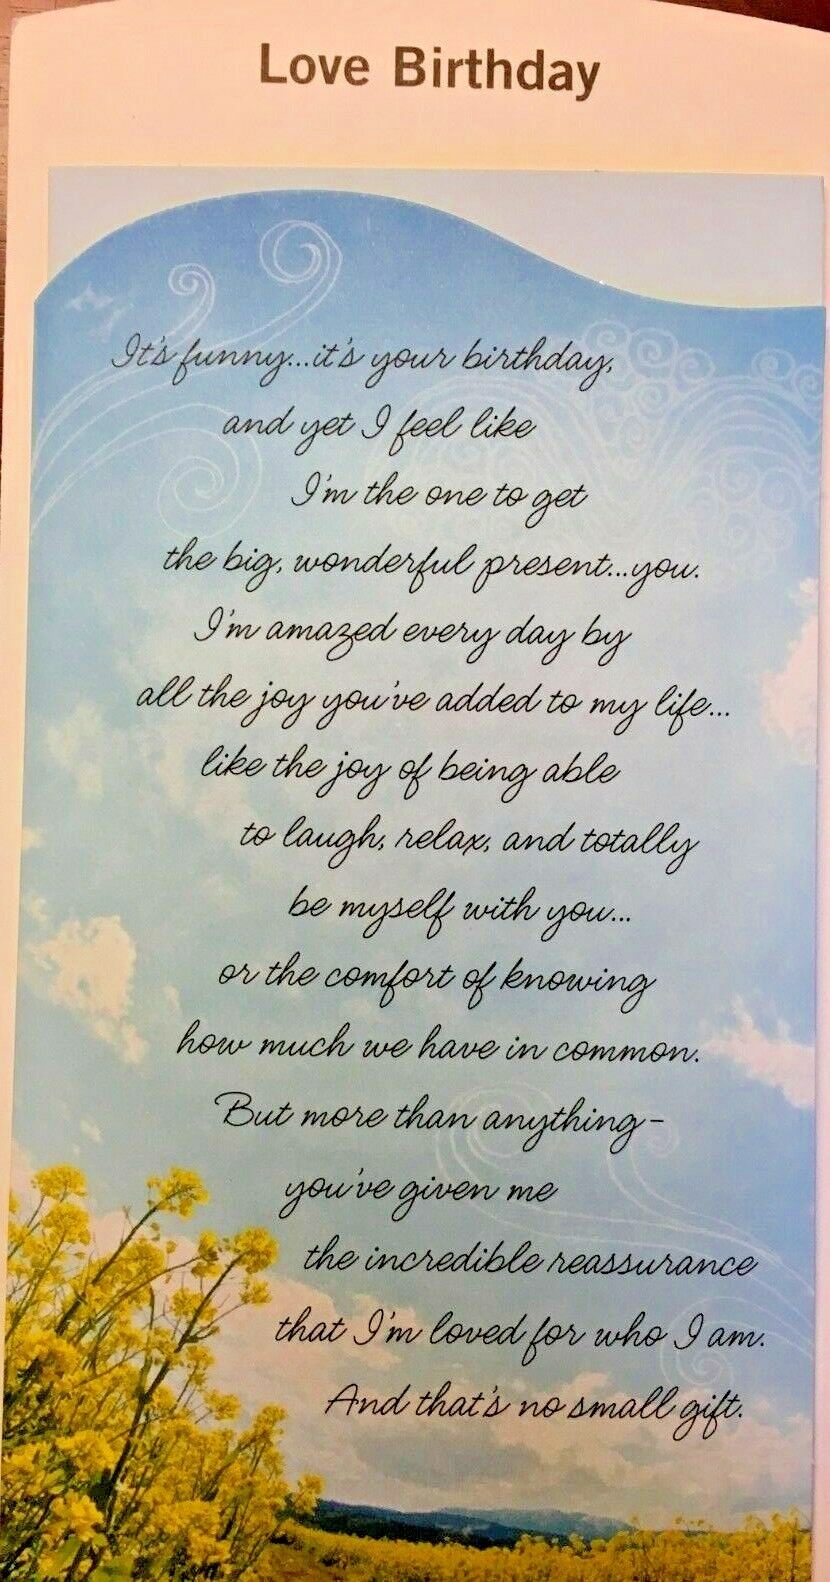 Love Birthday
It's funny...it's your birthday,
and yet I feel like
I'm the one to get
the big, wonderful present...you.
I'm amazed every day by
all the joy you've added to my life...
like the joy of being able
to laugh, relax, and totally
be myself with you...
or the comfort of knowing
how much we have in common.
But more than anything–
you've given me
the incredible reassurance
that I'm loved for who I am.
And that's no small gift.